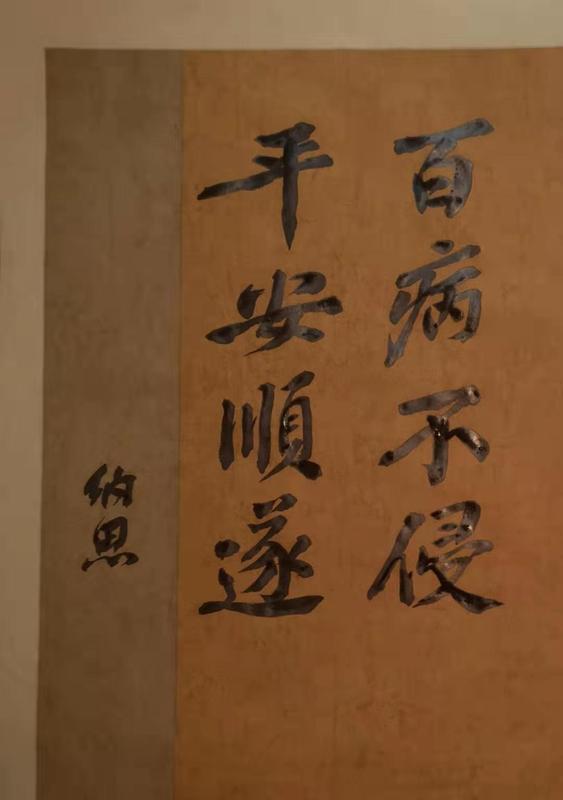 百病不侵
平安順遂
纳思